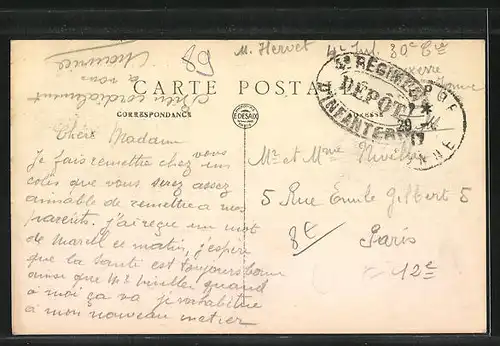 M. Hervet 4e Inf. 30e Cie
Auxerre
Yonne
89
bien cordialement
à vous
Maurice
CARTE POSTALE
CORRESPONDANCE
ADRESSE
DESAIX
4e RÉGIMENT
DÉPÔT
D'INFANTERIE
YONNE
Chère Madame
Je fais remettre chez vous un
colis que vous serez assez
aimable de remettre à mes
parents. J'ai reçu un mot
de Marcel ce matin, j'espère
que la santé est toujours bonne
ainsi que Mr quand
à moi ça va je m'habitue
à mon nouveau métier
Mr et Mme
5 Rue Emile Gilbert 5
Paris
12e